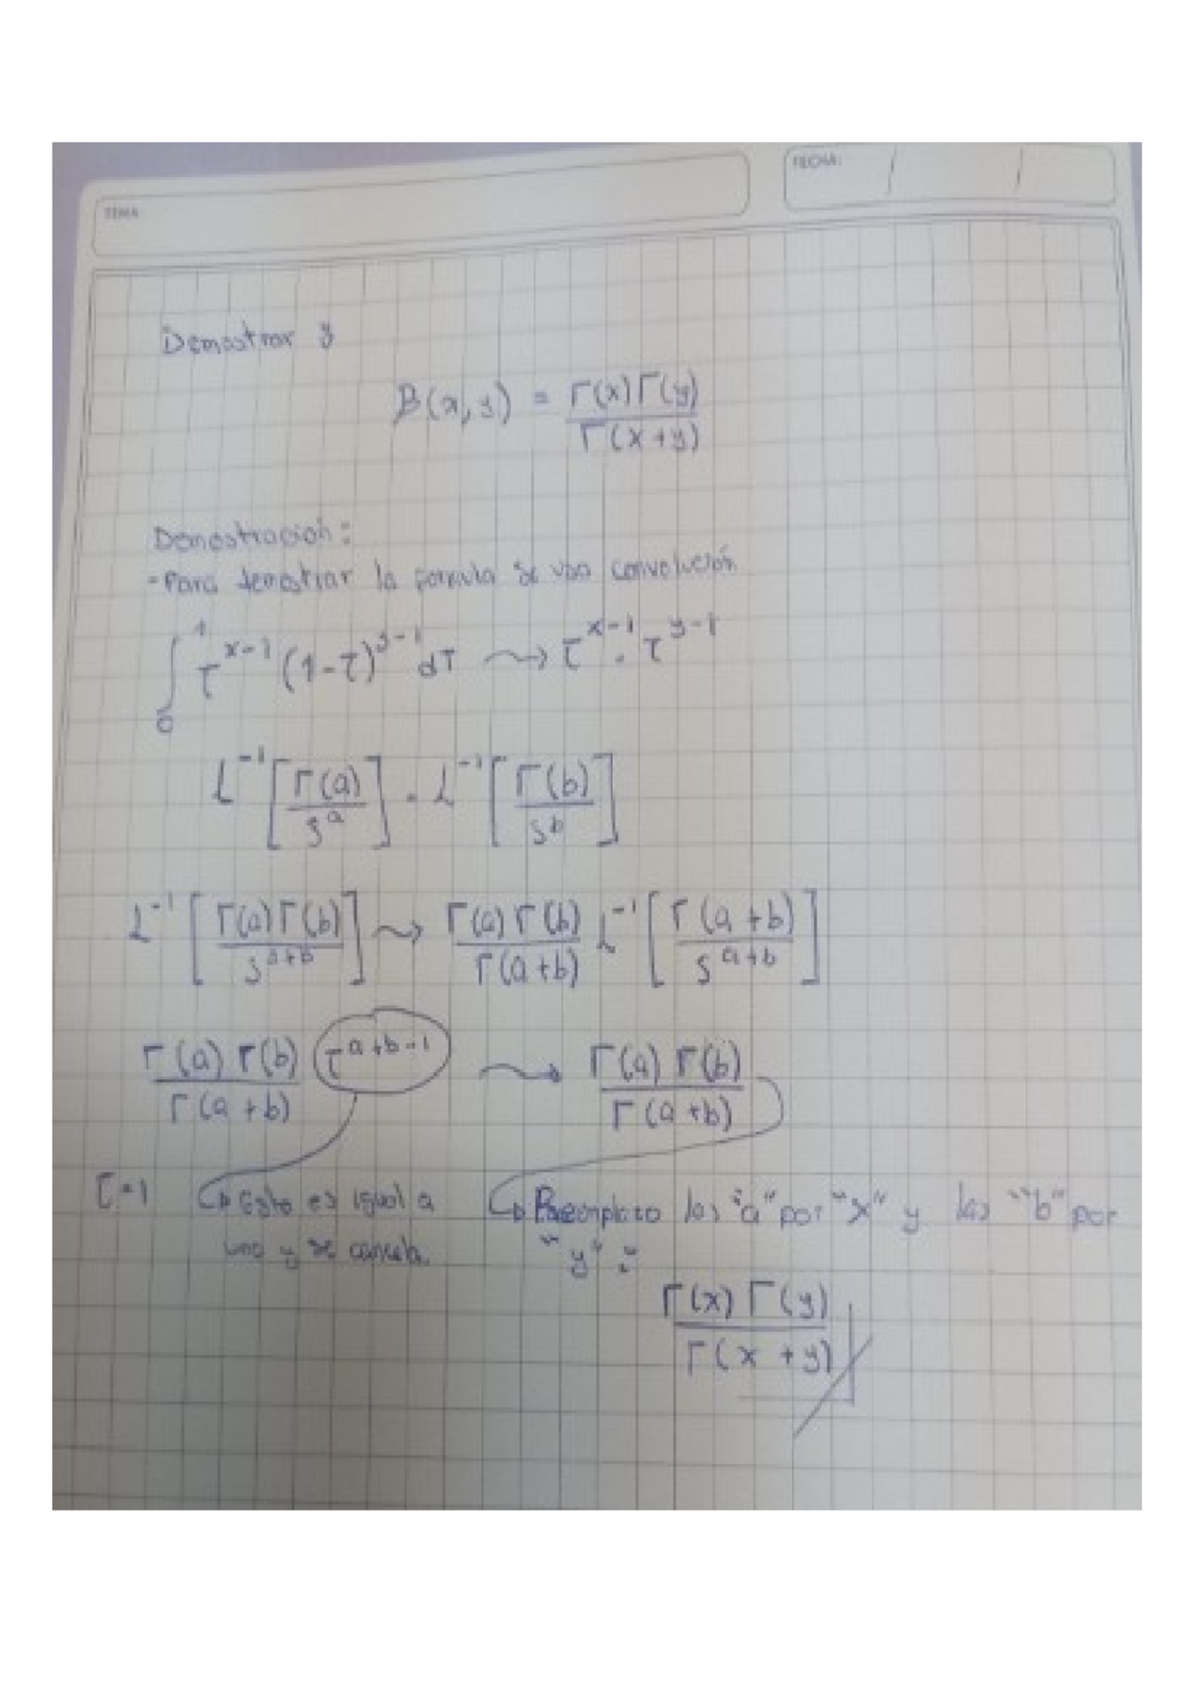 TEMA:
FECHA:
Demostrar y
B(x,y) = Γ(x)Γ(y) / Γ(x+y)
Demostración:
-Para demostrar la formula se usa convolución
∫₀¹ τ^(x-1) (1-τ)^(y-1) dτ ⇝ τ^(x-1) · τ^(y-1)
L^-1 [Γ(a) / s^a] · L^-1 [Γ(b) / s^b]
L^-1 [Γ(a)Γ(b) / s^(a+b)] ⇝ Γ(a)Γ(b) / Γ(a+b) L^-1 [Γ(a+b) / s^(a+b)]
Γ(a)Γ(b) / Γ(a+b) τ^(a+b-1) ⇝ Γ(a)Γ(b) / Γ(a+b)
τ=1 ↳ Esto es igual a uno y se cancela.
↳ Reemplazo las "a" por "x" y las "b" por "y" :
Γ(x)Γ(y) / Γ(x+y)